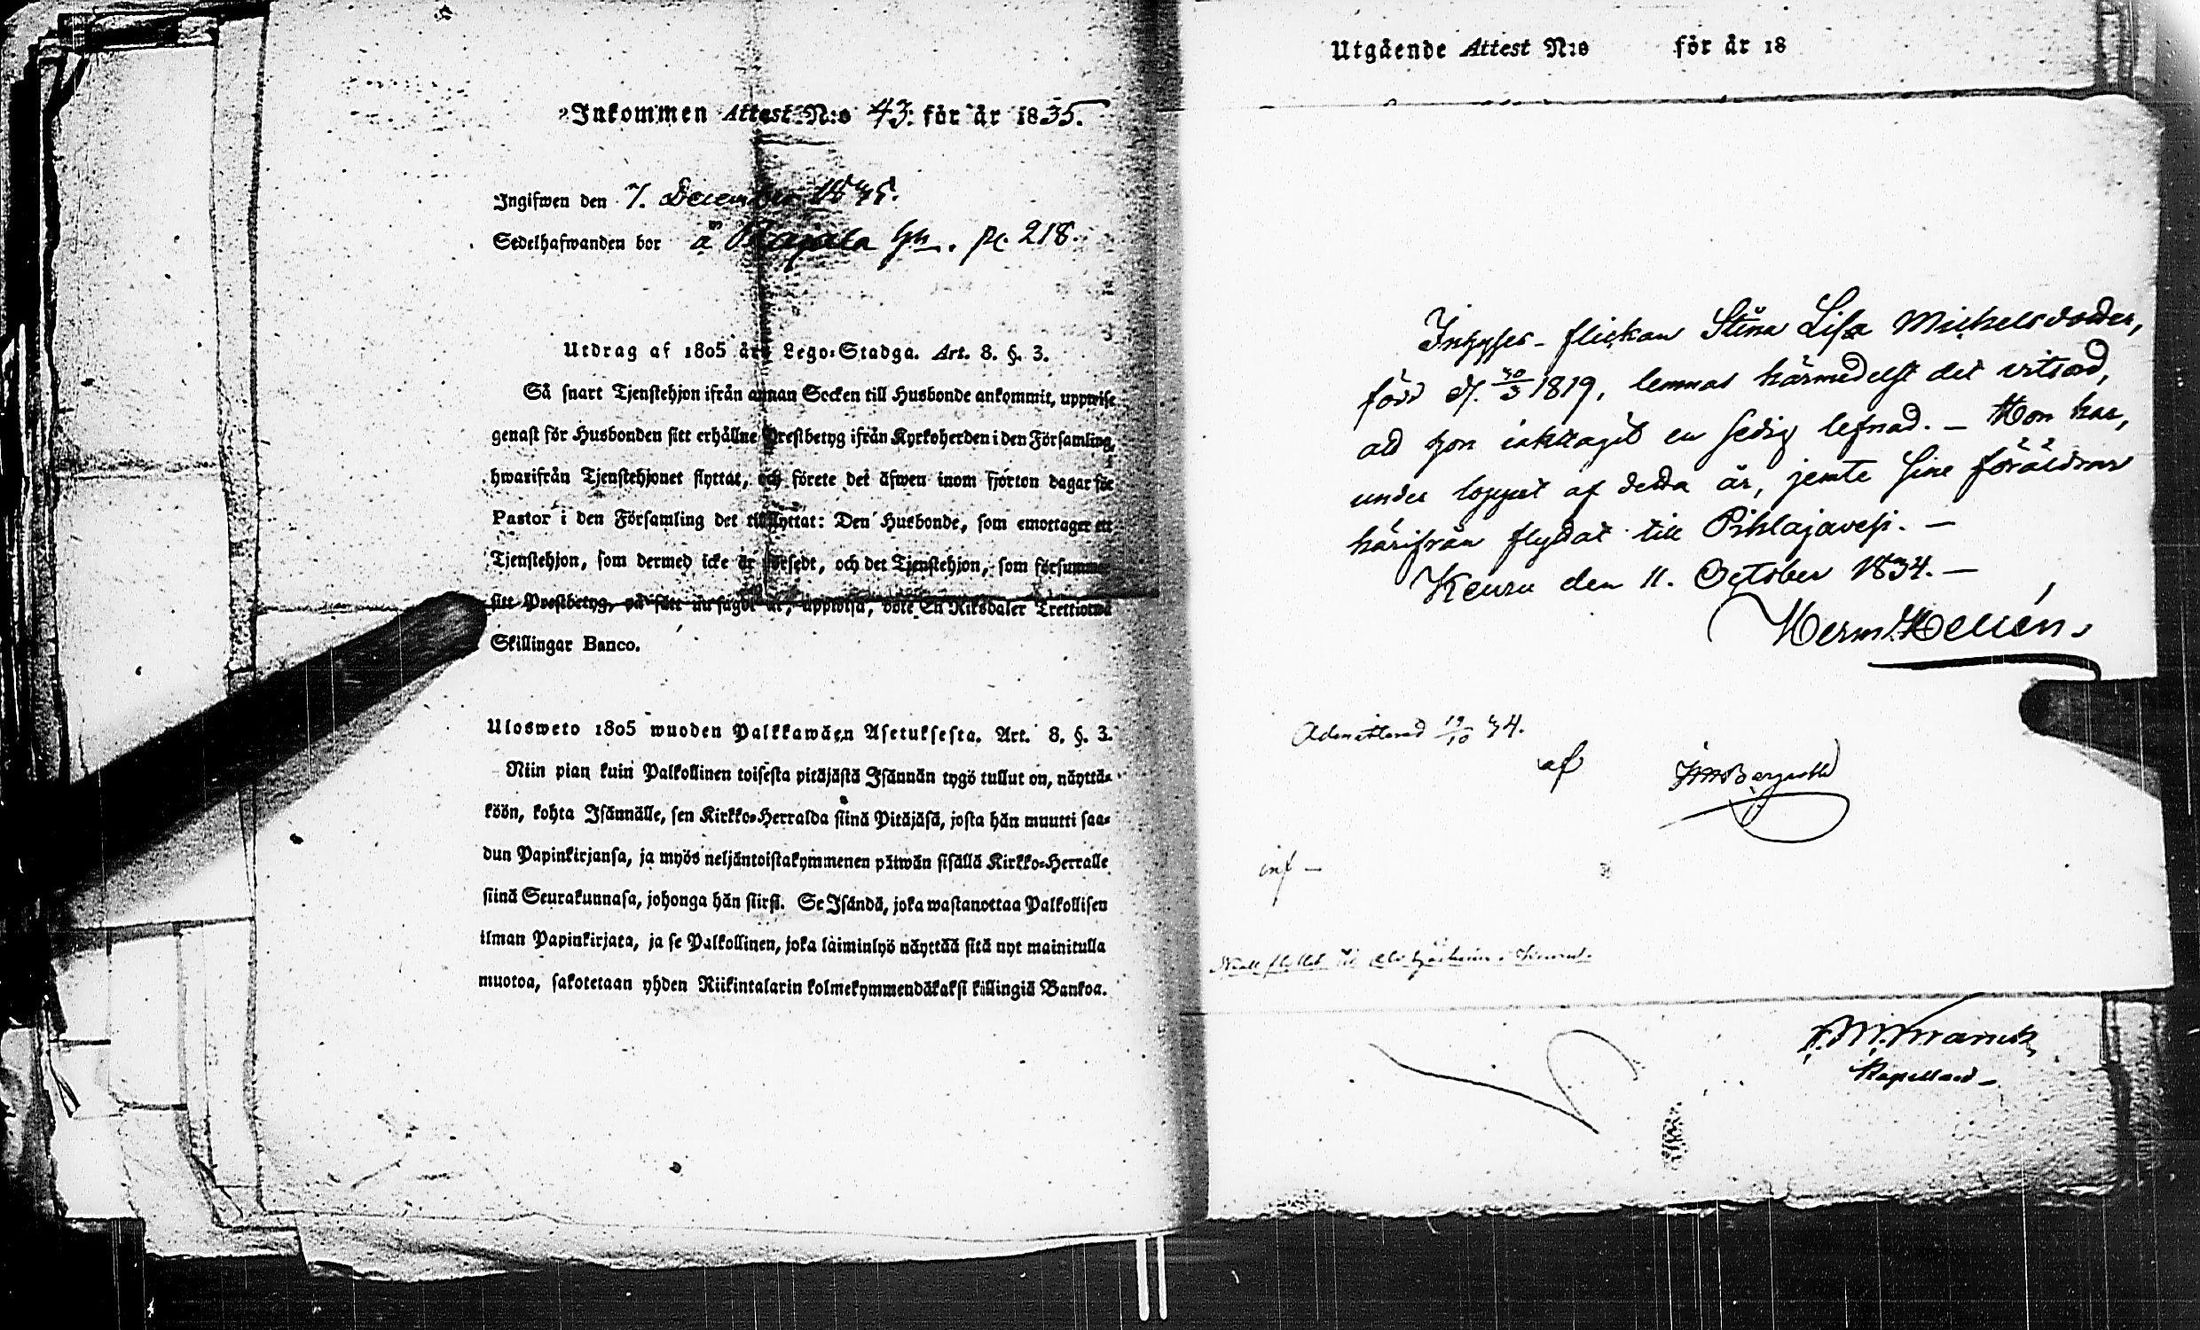 Inkommen Attest N:o 43. för år 1835.
Ingifwen den 7. December 1835.
Sedelhafwanden bor å pc. 218.
Utdrag af 1805 års Lego-Stadga. Art. 8. §. 3.
Så snart Tjenstehjon ifrån annan Socken till Husbonde ankommit, uppwise
genast för Husbonden sitt erhållne Prestbetyg ifrån Kyrkoherden i den Församling,
hwarifrån Tjenstehjonet flyttat, och förete det äfwen inom fjorton dagar för
Pastor i den Församling det tillflyttat: Den Husbonde, som emottager ett
Tjenstehjon, som dermed icke är försedt, och det Tjenstehjon, som försummar
sitt Prestbetyg, på sätt nu sagdt är, uppwisa, böte En Riksdaler Trettiotwå
Skillingar Banco.
Ulosweto 1805 wuoden Palkkawäen Asetuksesta. Art. 8. §. 3.
Niin pian kuin Palkollinen toisesta pitäjästä Isännän tygö tullut on, näyttä-
köön, kohta Isännälle, sen Kirkko-Herralda siinä Pitäjäsä, josta hän muutti saa-
dun Papinkirjansa, ja myös neljäntoistakymmenen päiwän sisällä Kirkko-Herralle
siinä Seurakunnasa, johonga hän siirsi. Se Isändä, joka wastanottaa Palkollisen
ilman Papinkirjata, ja se Palkollinen, joka laiminlyö näyttää sitä nyt mainitulla
muotoa, sakotetaan yhden Riikintalarin kolmekymmendäkaksi killingiä Bankoa.
Utgående Attest N:o för år 18
Inhyses-flickan Stina Lisa Michelsdotter,
född d. 30/3 1819, lemnas härmedelst det vitsord,
att hon iakttagit en sedig lefnad. – Hon har,
under loppet af detta år, jemte sine föräldrar
härifrån flyttat till Pihlajavesi. –
Keuru den 11. October 1834. –
Herm. Hellén.
Admitterad 19/10 34.
af
inf –
Kapellan –